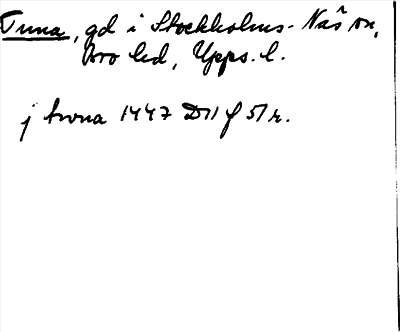 Tuna, gd i Stockholms-Näs sn,
Bro hd, Upps. l.
j twna 1447 D11 f 51 r.